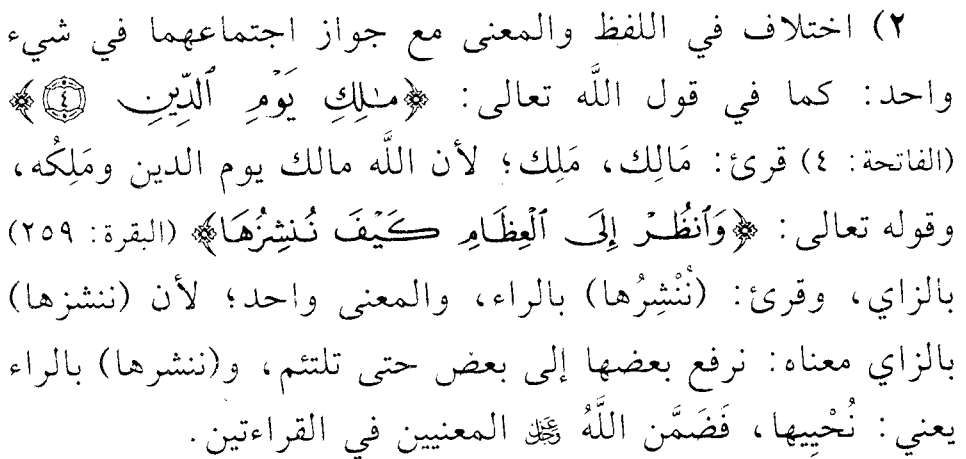 ٢) اختلاف في اللفظ والمعنى مع جواز اجتماعهما في شيء
واحد: كما في قول اللَّه تعالى: ﴿مَـٰلِكِ يَوْمِ ٱلدِّينِ ﴿٤﴾﴾
(الفاتحة: ٤) قرئ: مَالِك، مَلِك؛ لأن اللَّه مالك يوم الدين ومَلِكُه،
وقوله تعالى: ﴿وَٱنظُـرْ إِلَى ٱلْعِظَـامِ كَـيْفَ نُـنشِزُهَـا﴾ (البقرة: ٢٥٩)
بالزاي، وقرئ: (نُنْشِرُها) بالراء، والمعنى واحد؛ لأن (ننشزها)
بالزاي معناه: نرفع بعضها إلى بعض حتى تلتئم، و(ننشرها) بالراء
يعني: نُحْيِيها، فَضَمَّن اللَّهُ ﷿ المعنيين في القراءتين.